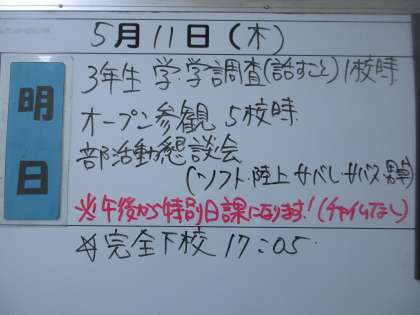 5月11日(木)
明日
3年生 学・学調査(話すこと) 1校時
オープン参観 5校時
部活動懇談会
(ソフト・陸上 サベし サバス 男卓)
※午後から特別日課になります!(チャイムなし)
☆完全下校 17:05